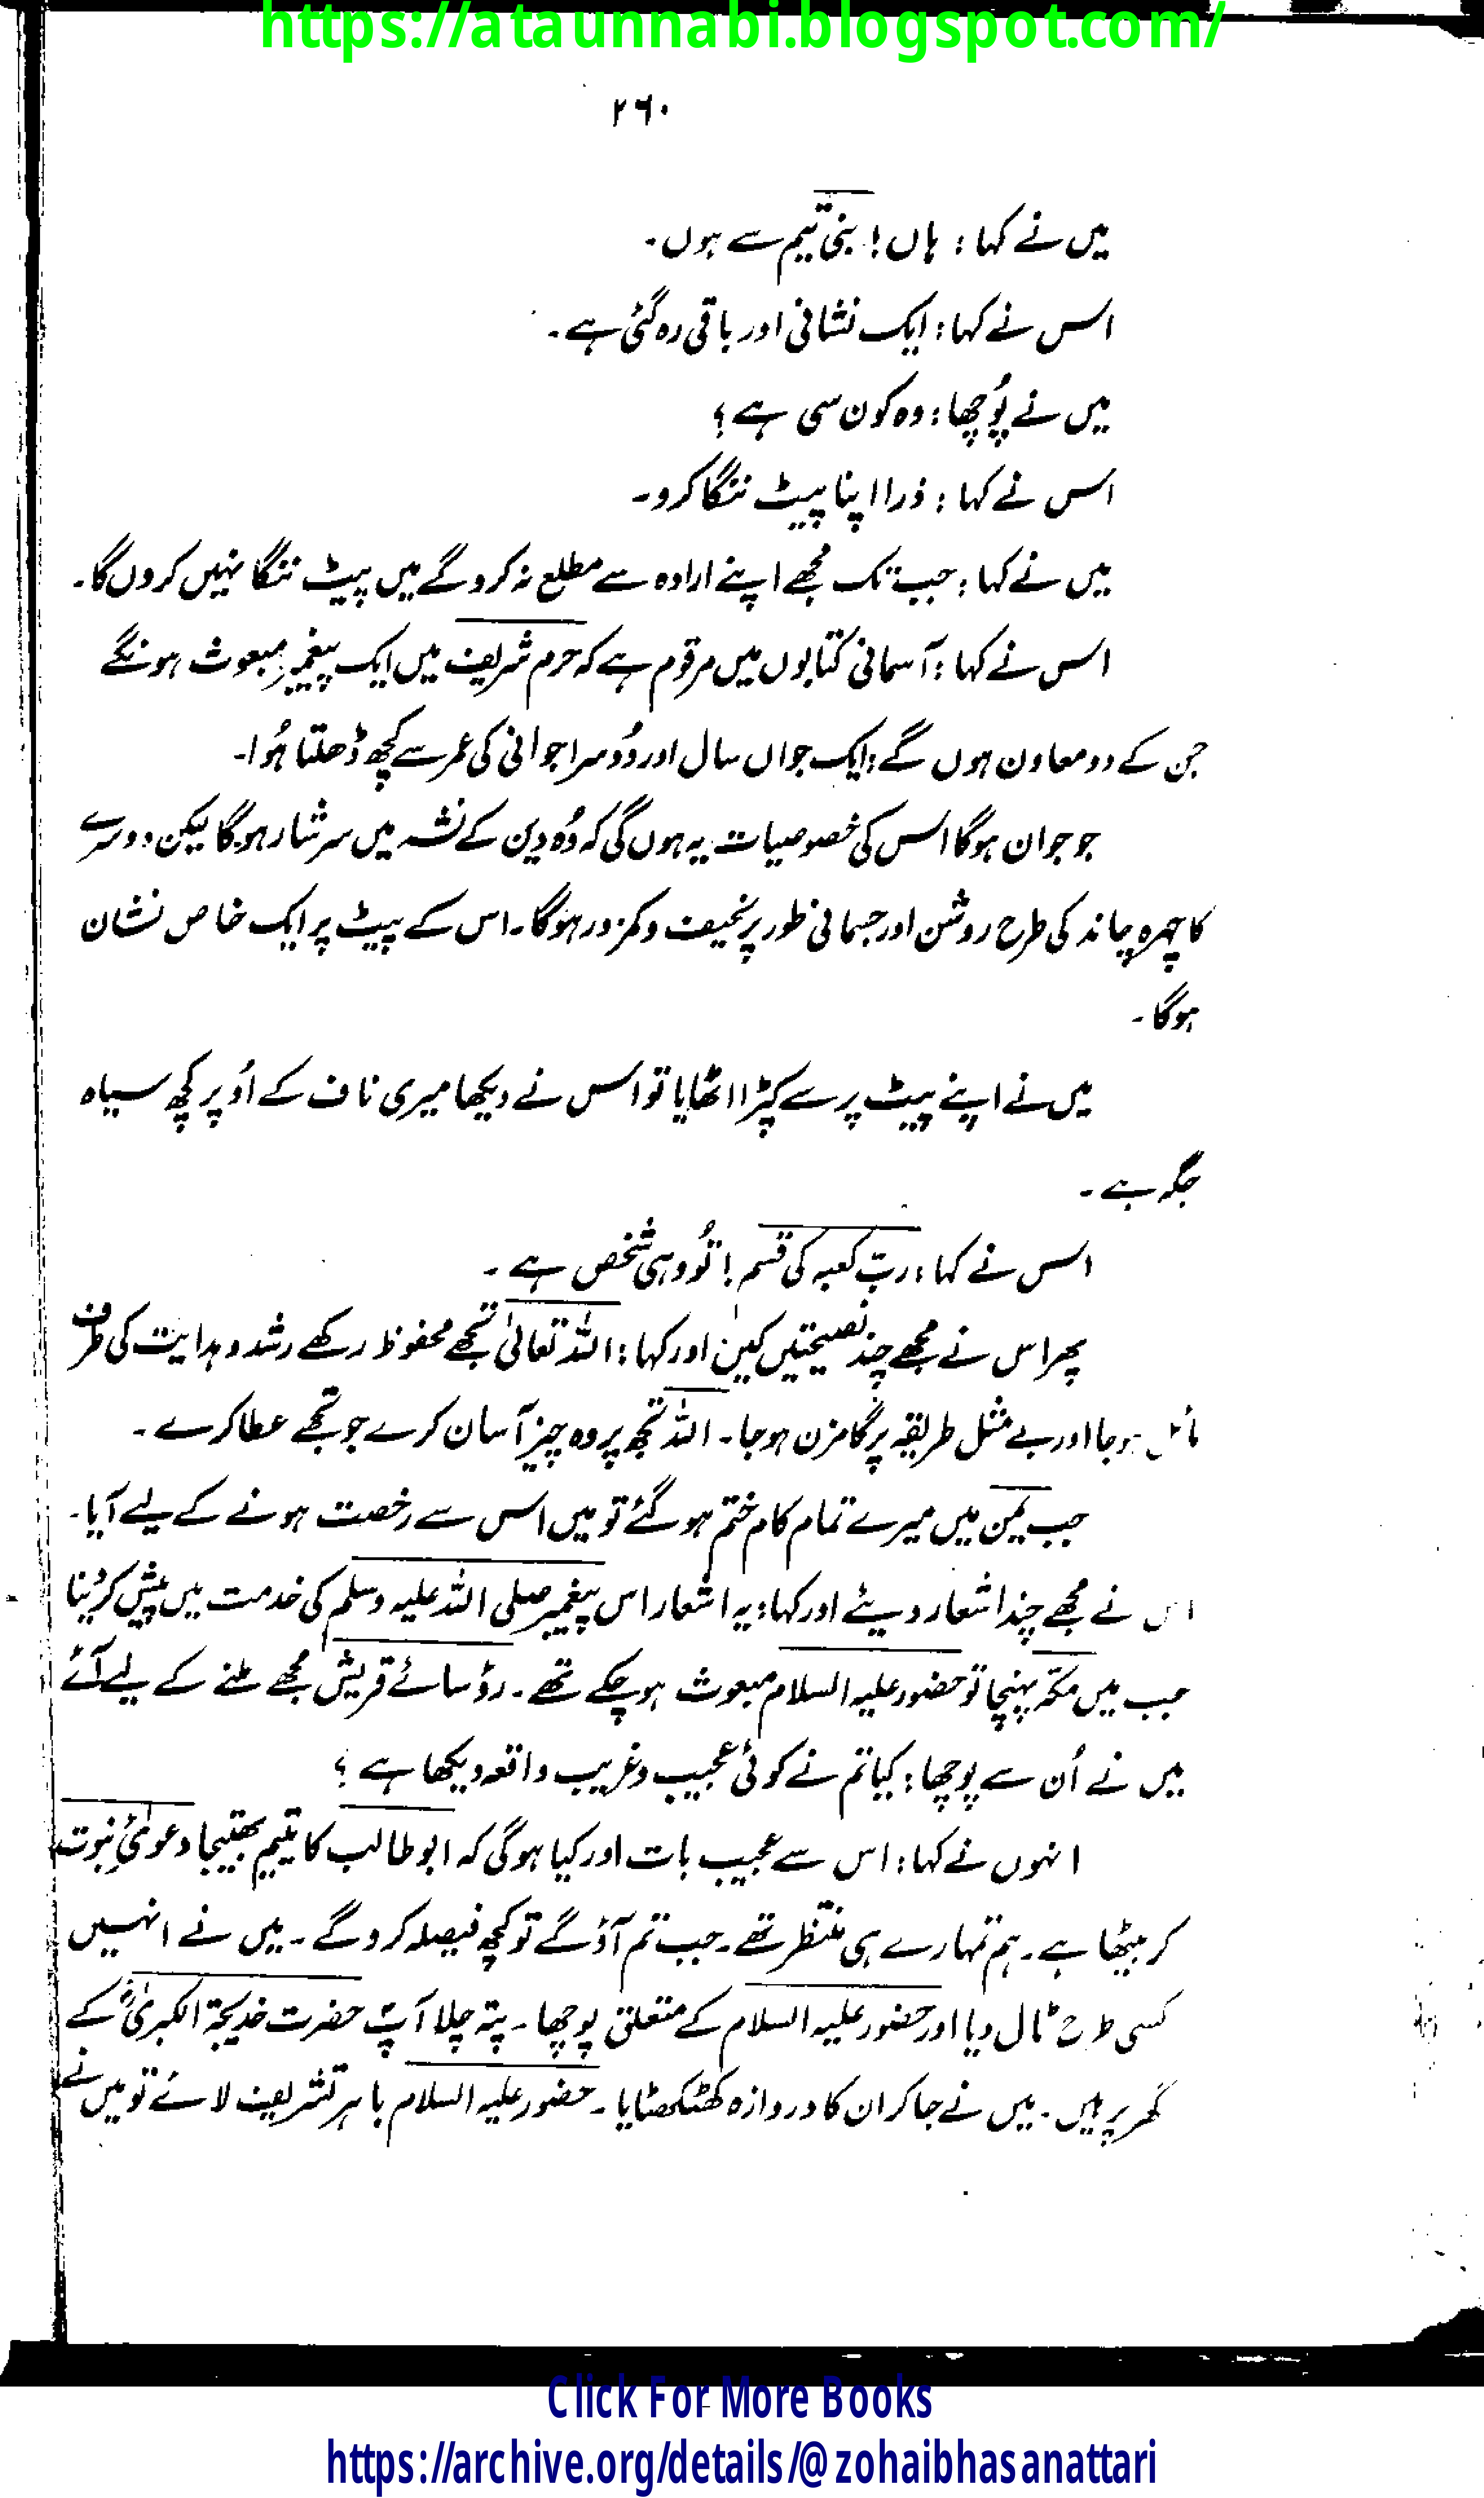 https://ataunnabi.blogspot.com/
۲۶۰
میں نے کہا : ہاں ! بنی تیم سے ہوں۔
اس نے کہا : ایک نشانی اور باقی رہ گئی ہے۔
میں نے پُوچھا : وہ کون سی ہے ؟
اس نے کہا : ذرا اپنا پیٹ ننگا کرو۔
میں نے کہا : جب تک مجھے اپنے ارادہ سے مطلع نہ کرو گے میں پیٹ ننگا نہیں کروں گا۔
اس نے کہا : آسمانی کتابوں میں مرقوم ہے کہ حرم شریف میں ایک پیغمبرِ مبعوث ہونگے
جن کے دو معاون ہوں گے : ایک جواں سال اور دُوسرا جوانی کی عمر سے کچھ ڈھلتا ہُوا۔
جو جوان ہوگا اس کی خصوصیات یہ ہوں گی کہ وُہ دین کے نشہ میں سرشار ہوگا لیکن دوسرے
کا چہرہ چاند کی طرح روشن اور جسمانی طور پر نحیف و کمزور ہوگا۔ اس کے پیٹ پر ایک خاص نشان
ہوگا۔
میں نے اپنے پیٹ پر سے کپڑا اٹھایا تو اس نے دیکھا میری ناف کے اُوپر کچھ سیاہ
جگہ ہے۔
اس نے کہا : ربّ کعبہ کی قسم ! تُو وہی شخص ہے۔
پھر اس نے مجھے چند نصیحتیں کیں اور کہا : اللہ تعالیٰ تجھے محفوظ رکھے رشد و ہدایت کی طرف
مائل ہو جا اور بے مثل طریقہ پر گامزن ہو جا۔ اللہ تجھ پر وہ چیز آسان کرے جو تجھے عطا کرے۔
جب یمن میں میرے تمام کام ختم ہو گئے تو میں اس سے رخصت ہونے کے لیے آیا۔
اس نے مجھے چند اشعار دیئے اور کہا : یہ اشعار اس پیغمبر صلی اللہ علیہ وسلم کی خدمت میں پیش کر دینا
جب میں مکّہ پہنچا تو حضور علیہ السلام مبعوث ہو چکے تھے۔ رؤسائے قریش مجھے ملنے کے لیے آئے
میں نے اُن سے پوچھا : کیا تم نے کوئی عجیب و غریب واقعہ دیکھا ہے ؟
انہوں نے کہا : اس سے عجیب بات اور کیا ہوگی کہ ابوطالب کا یتیم بھتیجا دعوئِ نبوت
کر بیٹھا ہے۔ ہم تمہارے ہی منتظر تھے۔ جب تم آؤ گے تو کچھ فیصلہ کرو گے۔ میں نے انہیں
کسی طرح ٹال دیا اور حضور علیہ السلام کے متعلق پوچھا۔ پتہ چلا آپؐ حضرت خدیجۃ الکبریٰؓ کے
گھر پر ہیں۔ میں نے جا کر ان کا دروازہ کھٹکھٹایا۔ حضور علیہ السلام باہر تشریف لائے تو میں نے
Click For More Books
https://archive.org/details/@zohaibhasanattari